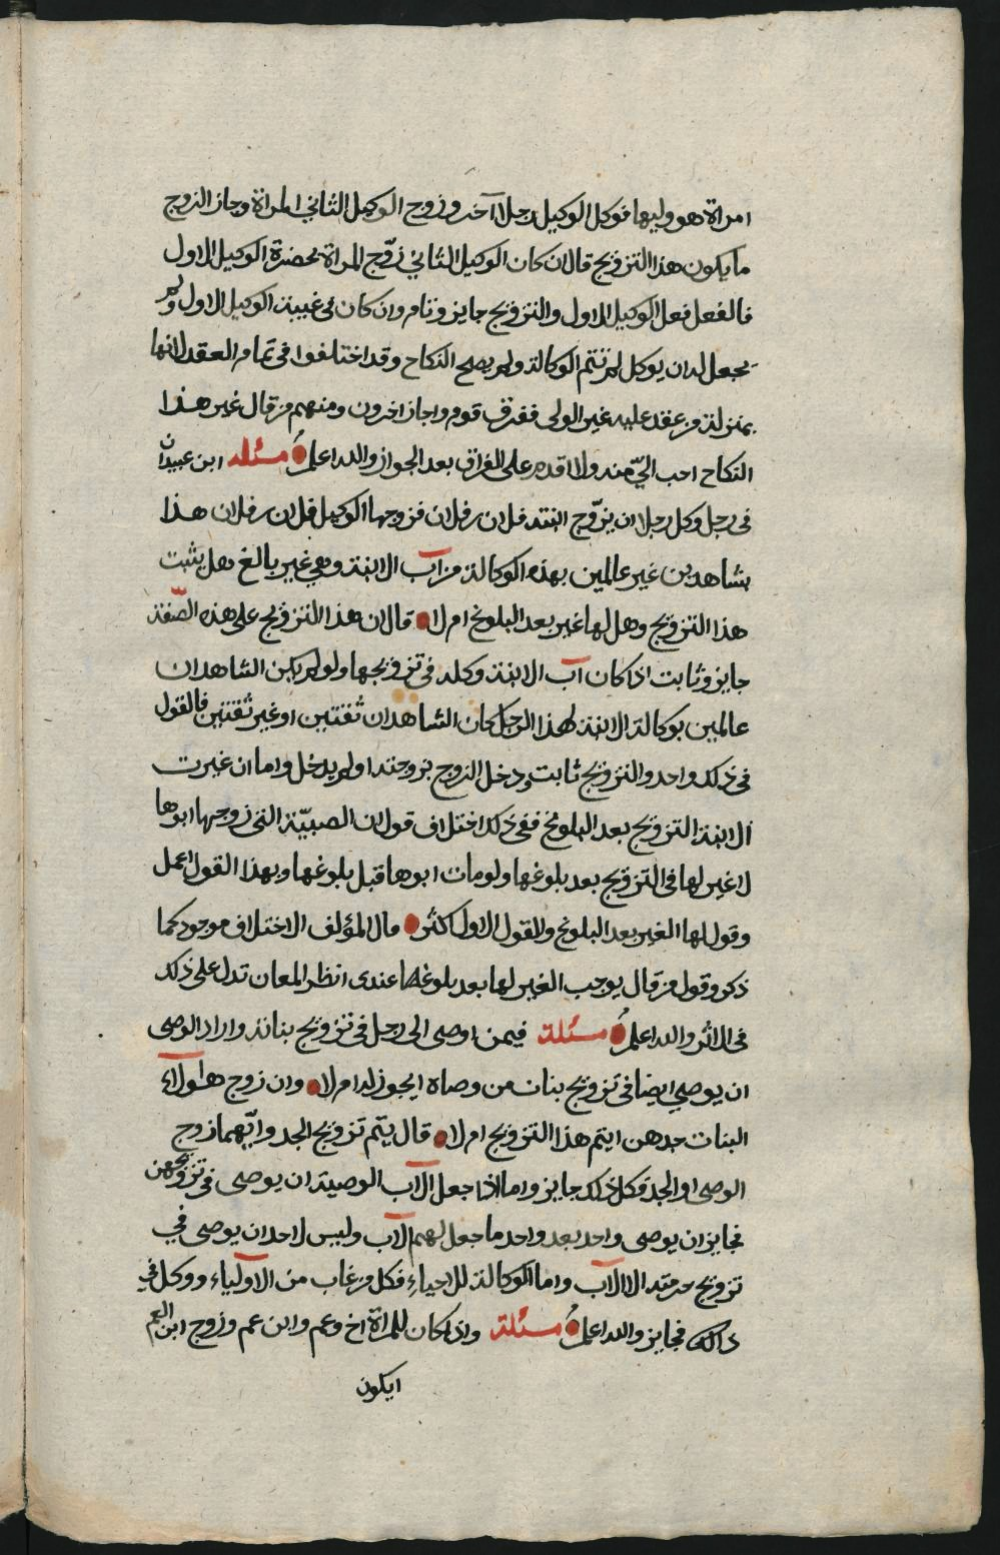 امراة هو وليها فوكل الوكيل رجلا آخر وزوج الوكيل الثاني المراة وجاز الزوج
ما يكون هذا التزويج قال ان كان الوكيل الثاني زوّج المراة بحضرة الوكيل الاول
فالفعل فعل الوكيل الاول والتزويج جايز وتام وان كان في غيبة الوكيل الاول ولم
يجعل له ان يوكل لم تتم الوكالة ولم يصح النكاح وقد اختلفوا في تمام العقد لانها
بمنزلة من عقد عليه غير الولي ففرق قوم واجاز اخرون ومنهم من قال غير هذا
النكاح احب اليّ منه ولا اقدم على الفراق بعد الجواز والله اعلم مسئله ابن عبيدان
في رجل وكل رجلا ان يزوّج ابنته فلان بن فلان فزوجها الوكيل فلان بن فلان هذا
بشاهدين غير عالمين بهذه الوكالة من آب الابنة وهي غير بالغ هل يثبت
هذا التزويج وهل لها غير بعد البلوغ ام لا قال ان هذا التزويج على هذه الصّفة
جايز وثابت اذا كان آب الابنة وكله في تزويجها ولو لم يكن الشاهدان
عالمين بوكالة الابنة لهذا الرجل كان الشاهدان ثقتين او غير ثقتين فالقول
في ذلك واحد والتزويج ثابت ودخل الزوج بزوجته او لم يدخل واما ان غيرت
الابنة التزويج بعد البلوغ ففي ذلك اختلاف قول ان الصبيّة التي زوجها ابوها
لا غير لها في التزويج بعد بلوغها ولو مات ابوها قبل بلوغها وبهذا القول اعمل
وقول لها الغير بعد البلوغ والقول الاول اكثر قال المؤلف الاختلاف موجود كما
ذكر وقول من قال يوجب الغير لها بعد بلوغها عندي انظر المعان تدل على ذلك
في الاثر والله اعلم مسئلة فيمن اوصى الى رجل في تزويج بناته واراد الوصي
ان يوصي ايضا في تزويج بنات من وصاه ايجوز له ام لا وان زوج هاولاء
البنات جدهن ايتم هذا التزويج ام لا قال يتم تزويج الجد وايّهما زوج
الوصي او الجد فكل ذلك جايز واما اذا جعل الآب الوصية ان يوصي في تزويجهن
فجايز ان يوصي واحد بعد واحد ما جعل لهم الآب وليس لاحد ان يوصي في
تزويج حرمته الا الآب واما الوكالة للاحياء فكل من غاب من الاولياء ووكل في
ذالك فجايز والله اعلم مسئلة واذا كان للمراة اخ وعم وابن عم وزوج ابن العم
ايكون